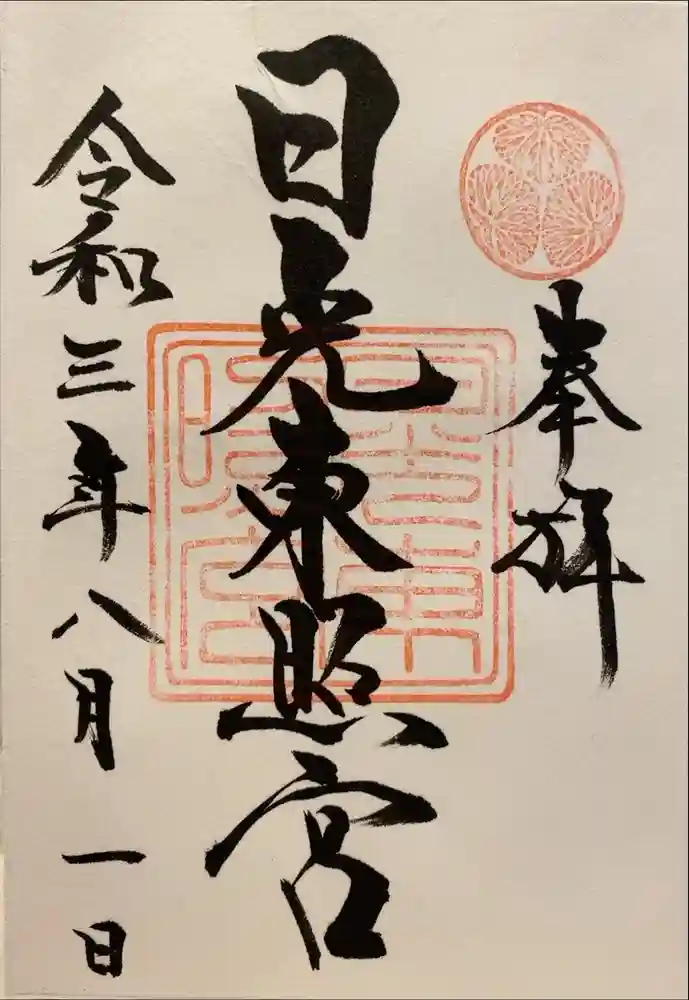 奉拝
日光東照宮
令和三年八月一日